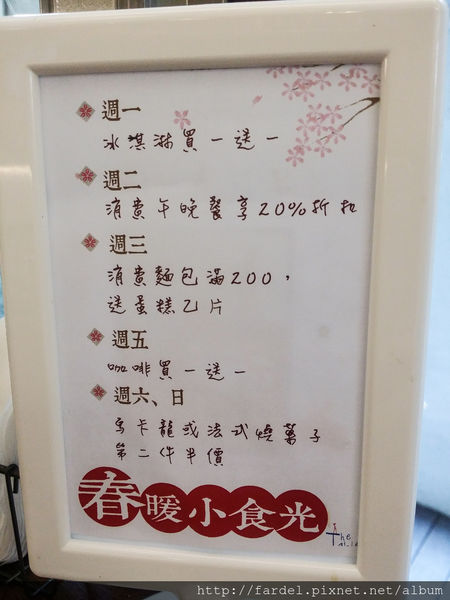 週一
冰淇淋買一送一
週二
消費午晚餐享20%折扣
週三
消費麵包滿200，
送蛋糕乙片
週五
咖啡買一送一
週六、日
馬卡龍或法式燒菓子
第二件半價
春暖小食光
the
http://fardel.pixnet.net/album